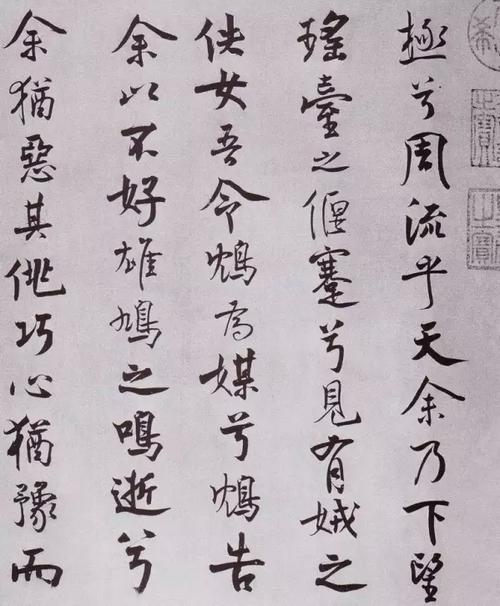 極兮周流乎天余乃下望
瑤臺之偃蹇兮見有娀之
佚女吾令鴆為媒兮鴆告
余以不好雄鳩之鳴逝兮
余猶惡其佻巧心猶豫而